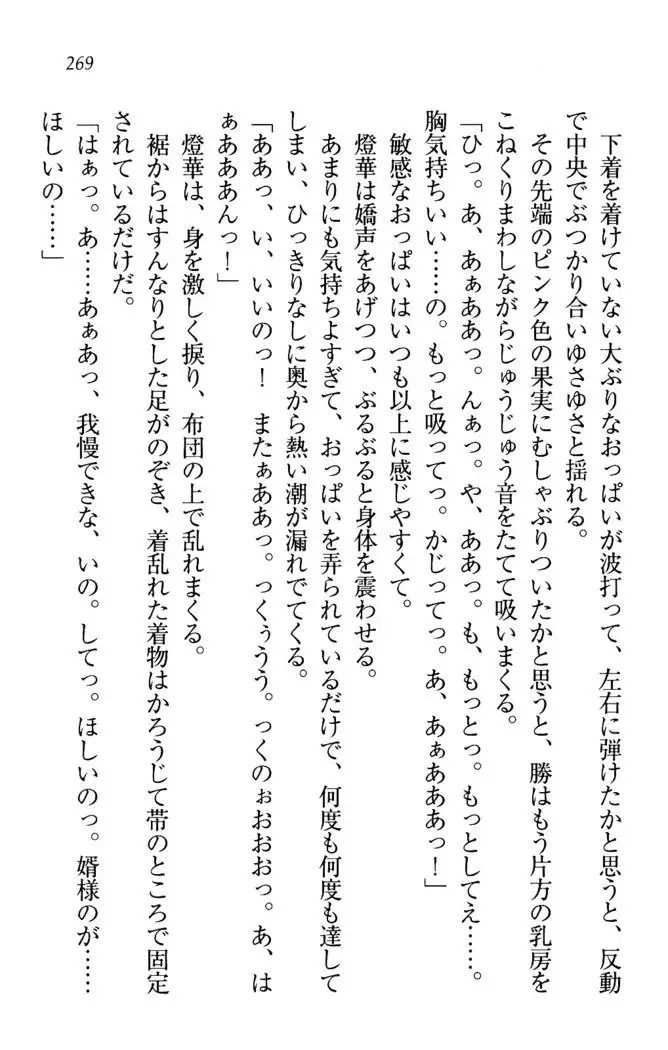 269
下着を着けていない大ぶりなおっぱいが波打って、左右に弾けたかと思うと、反動
で中央でぶつかり合いゆさゆさと揺れる。
その先端のピンク色の果実にむしゃぶりついたかと思うと、勝はもう片方の乳房を
こねくりまわしながらじゅうじゅう音をたてて吸いまくる。
「ひっ。あ、あぁああっ。んぁっ。や、ああっ。も、もっとっ。もっとしてえ……。
胸気持ちいい……の。もっと吸ってっ。かじってっ。あ、あぁあああっ！」
敏感なおっぱいはいつも以上に感じやすくて。
燈華は嬌声をあげつつ、ぶるぶると身体を震わせる。
あまりにも気持ちよすぎて、おっぱいを弄られているだけで、何度も何度も達して
しまい、ひっきりなしに奥から熱い潮が漏れでてくる。
「ああっ、い、いいのっ！　またぁああっ。っくぅうう。っくのぉおおおっ。あ、は
ぁああああんっ！」
燈華は、身を激しく捩り、布団の上で乱れまくる。
裾からはすんなりとした足がのぞき、着乱れた着物はかろうじて帯のところで固定
されているだけだ。
「はぁっ。あ……あぁあっ、我慢できな、いの。してっ。ほしいのっ。婿様のが……
ほしいの……」